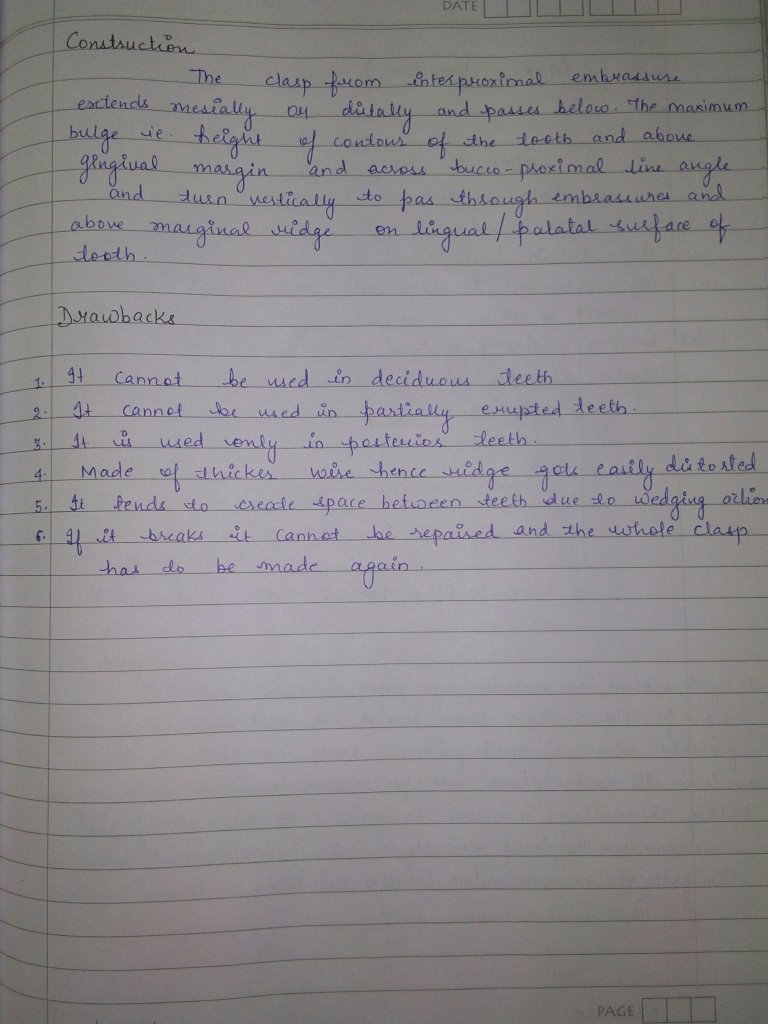 DATE
Construction
The clasp from interproximal embrassure
extends mesially or distally and passes below. The maximum
bulge ie. height of contour of the tooth and above
gingival margin and across bucco-proximal line angle
and turn vertically to pas through embrassures and
above marginal ridge on lingual/palatal surface of
tooth.
Drawbacks
1. It cannot be used in deciduous teeth
2. It cannot be used in partially erupted teeth.
3. It is used only in posterior teeth.
4. Made of thicker wire hence ridge gets easily distorted
5. It tends to create space between teeth due to wedging action
6. If it breaks it cannot be repaired and the whole clasp
has to be made again.
PAGE